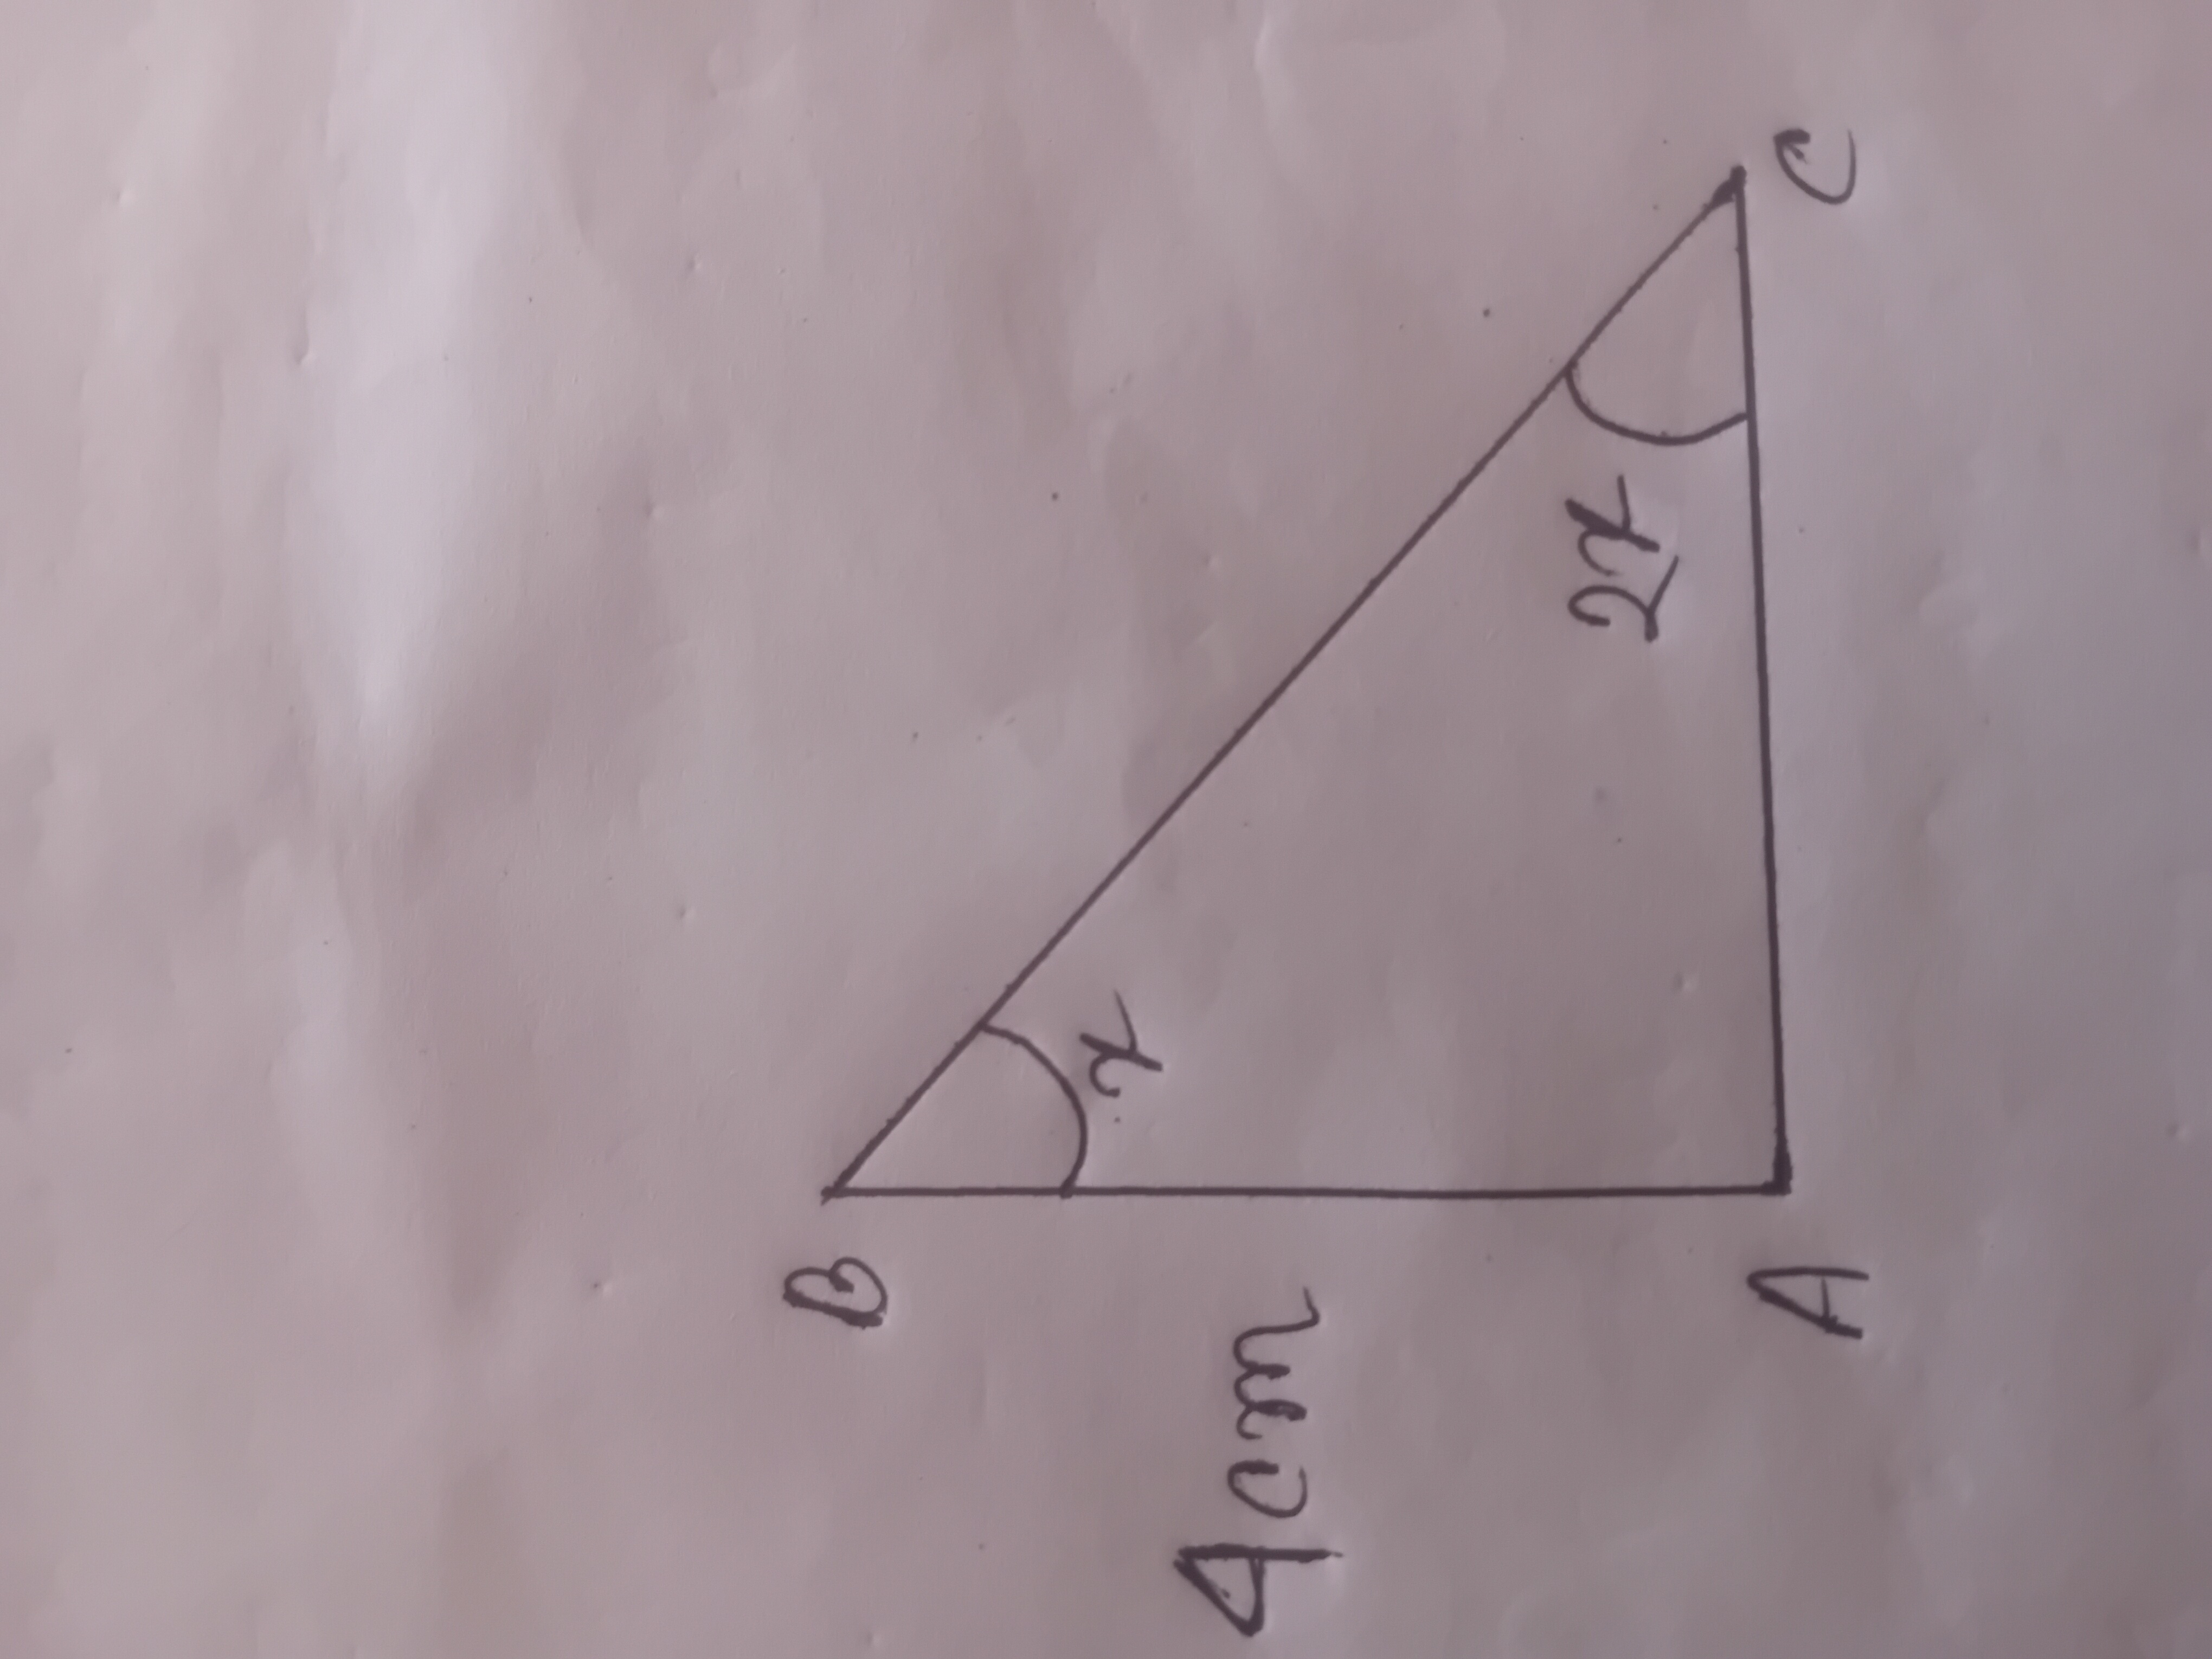 B
x
4cm
2x
A
C